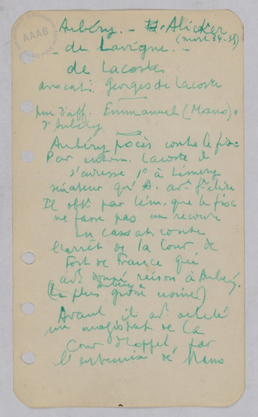 AAAB
Aubéry. – Alicker
(mort 34-35)
de Lavigne. –
de Lacoste
avocat. Georges de Lacoste
d'aff. Emmanuel (Mano).
d'Aubéry
Aubéry procès contre le fisc
Par Lacoste il
s'adresse 1° à Lémery
sénateur qu'A. av. élire
Il obt. par Lém. que le fisc
ne fasse pas un recours
en cassat. contre
l'arrêt de la Cour de
Fort de France qui
avt donné raison à Aubéry.
(la plus grosse)
Avant il avt acheté
un magistrat de la
Cour d'appel, par
l'entremise de Mano